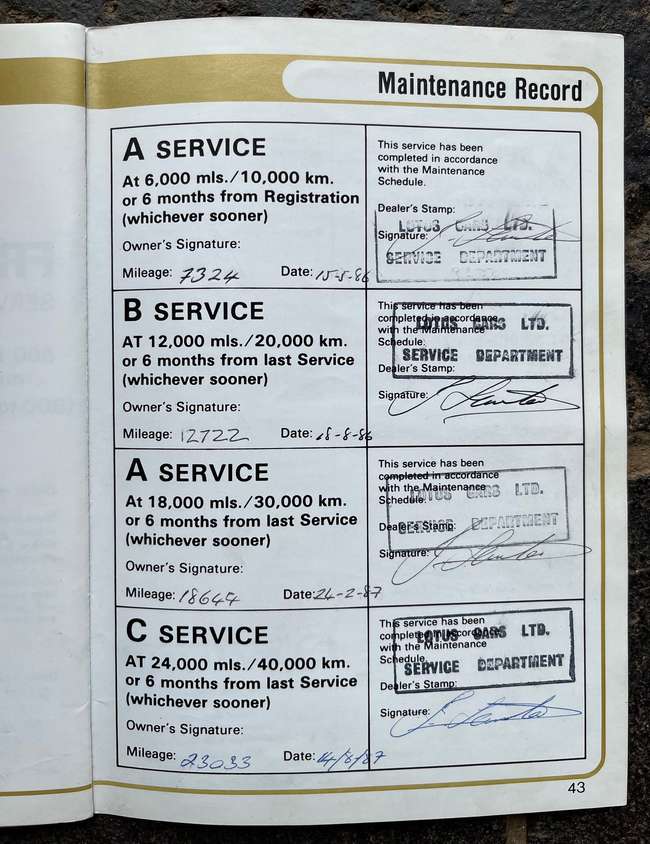 Maintenance Record
A SERVICE
At 6,000 mls./10,000 km.
or 6 months from Registration
(whichever sooner)
Owner's Signature:
Mileage: 7324 Date: 15-5-86
This service has been
completed in accordance
with the Maintenance
Schedule.
Dealer's Stamp:
LOTUS CARS LTD.
Signature:
SERVICE DEPARTMENT
B SERVICE
AT 12,000 mls./20,000 km.
or 6 months from last Service
(whichever sooner)
Owner's Signature:
Mileage: 12722 Date: 18-8-86
This service has been
completed in accordance
LOTUS CARS LTD.
with the Maintenance
Schedule.
SERVICE DEPARTMENT
Dealer's Stamp:
Signature:
A SERVICE
At 18,000 mls./30,000 km.
or 6 months from last Service
(whichever sooner)
Owner's Signature:
Mileage: 18644 Date: 24-2-87
This service has been
completed in accordance
with the Maintenance
LOTUS CARS LTD.
Schedule.
Dealer's Stamp:
SERVICE DEPARTMENT
Signature:
C SERVICE
AT 24,000 mls./40,000 km.
or 6 months from last Service
(whichever sooner)
Owner's Signature:
Mileage: 23033 Date: 14/8/87
This service has been
completed in accordance
LOTUS CARS LTD.
with the Maintenance
Schedule.
SERVICE DEPARTMENT
Dealer's Stamp:
Signature:
43